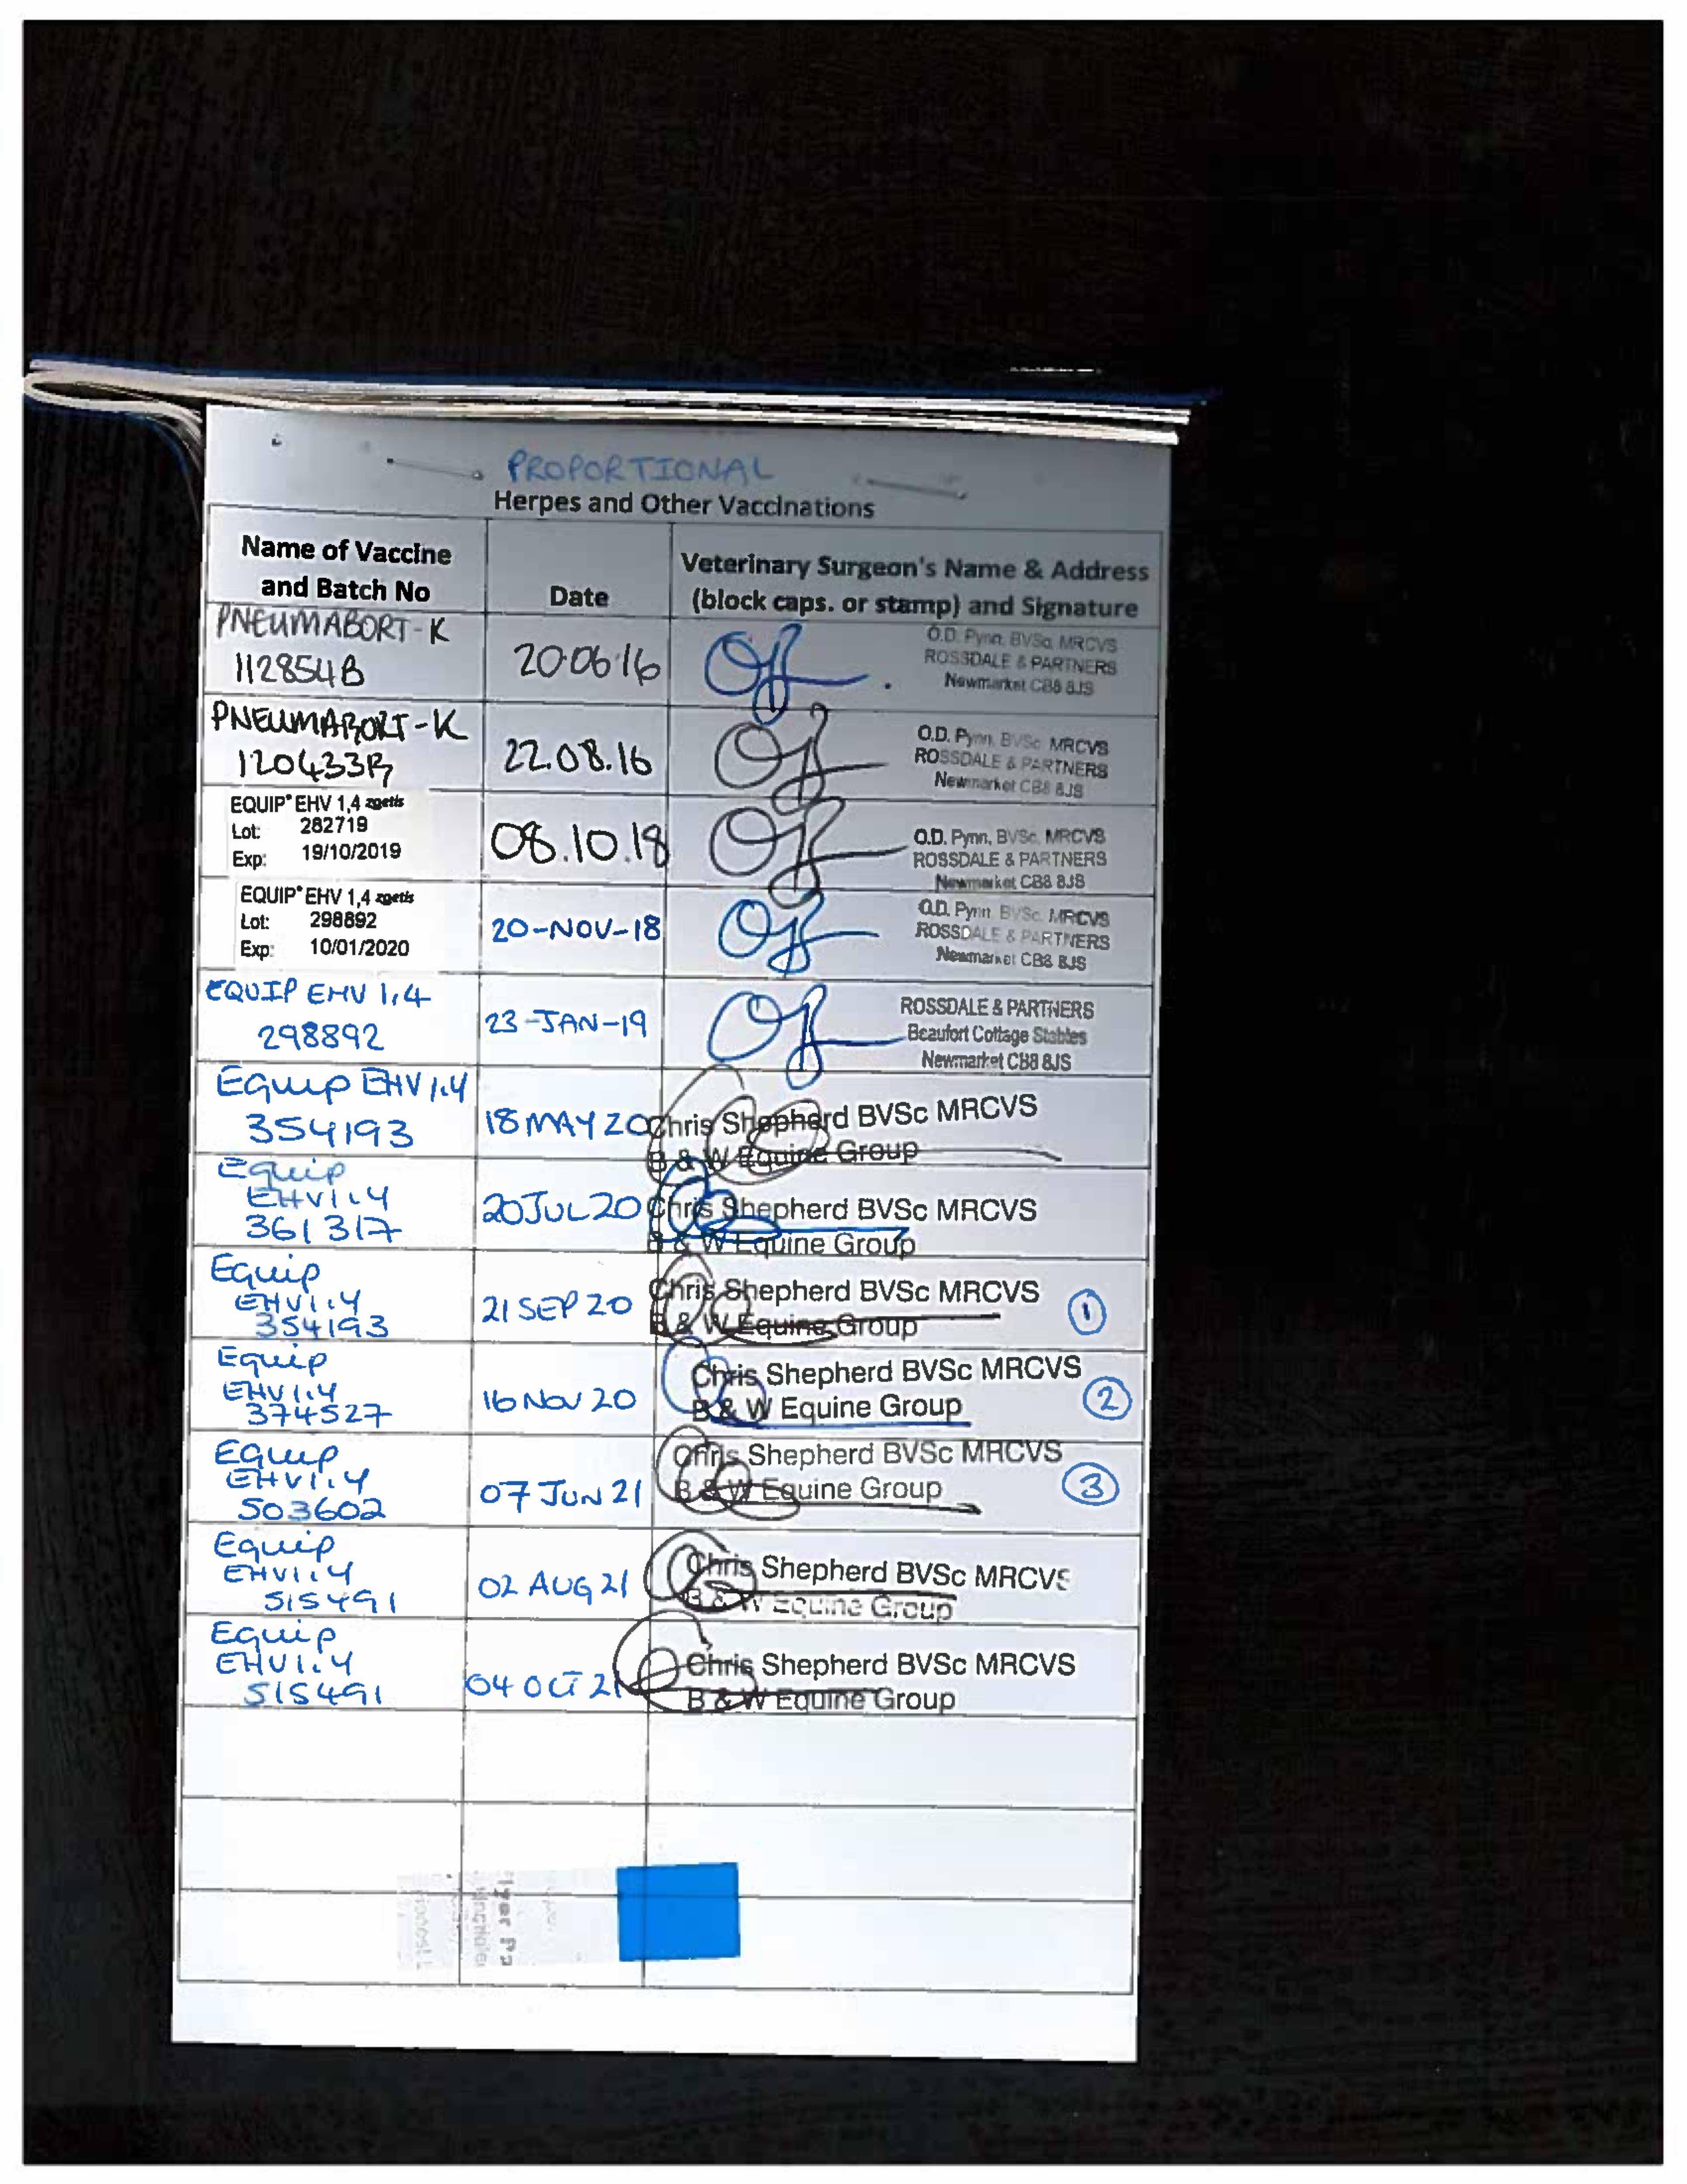 PROPORTIONAL
Herpes and Other Vaccinations
Name of Vaccine
and Batch No
Date
Veterinary Surgeon's Name & Address
(block caps. or stamp) and Signature
PNEUMABORT-K
112854B
20.06.16
O.D. Pynn, BVSc, MRCVS
ROSSDALE & PARTNERS
Newmarket CB8 8JS
PNEUMABORT-K
120433B
22.08.16
O.D. Pynn, BVSc, MRCVS
ROSSDALE & PARTNERS
Newmarket CB8 8JS
EQUIP® EHV 1,4 zoetis
Lot: 282719
Exp: 19/10/2019
08.10.18
O.D. Pynn, BVSc, MRCVS
ROSSDALE & PARTNERS
Newmarket CB8 8JS
EQUIP® EHV 1,4 zoetis
Lot: 298892
Exp: 10/01/2020
20-NOV-18
O.D. Pynn, BVSc, MRCVS
ROSSDALE & PARTNERS
Newmarket CB8 8JS
EQUIP EHV 1,4
298892
23-JAN-19
ROSSDALE & PARTNERS
Beaufort Cottage Stables
Newmarket CB8 8JS
Equip EHV 1.4
354193
18 MAY 20
Chris Shepherd BVSc MRCVS
B & W Equine Group
Equip
EHV1.4
361317
20 JUL 20
Chris Shepherd BVSc MRCVS
B & W Equine Group
Equip
EHV1.4
354193
21 SEP 20
Chris Shepherd BVSc MRCVS
B & W Equine Group
1
Equip
EHV1.4
374527
16 NOV 20
Chris Shepherd BVSc MRCVS
B & W Equine Group
2
Equip
EHV1.4
503602
07 JUN 21
Chris Shepherd BVSc MRCVS
B & W Equine Group
3
Equip
EHV1.4
515491
02 AUG 21
Chris Shepherd BVSc MRCVS
B & W Equine Group
Equip
EHV1.4
515491
04 OCT 21
Chris Shepherd BVSc MRCVS
B & W Equine Group